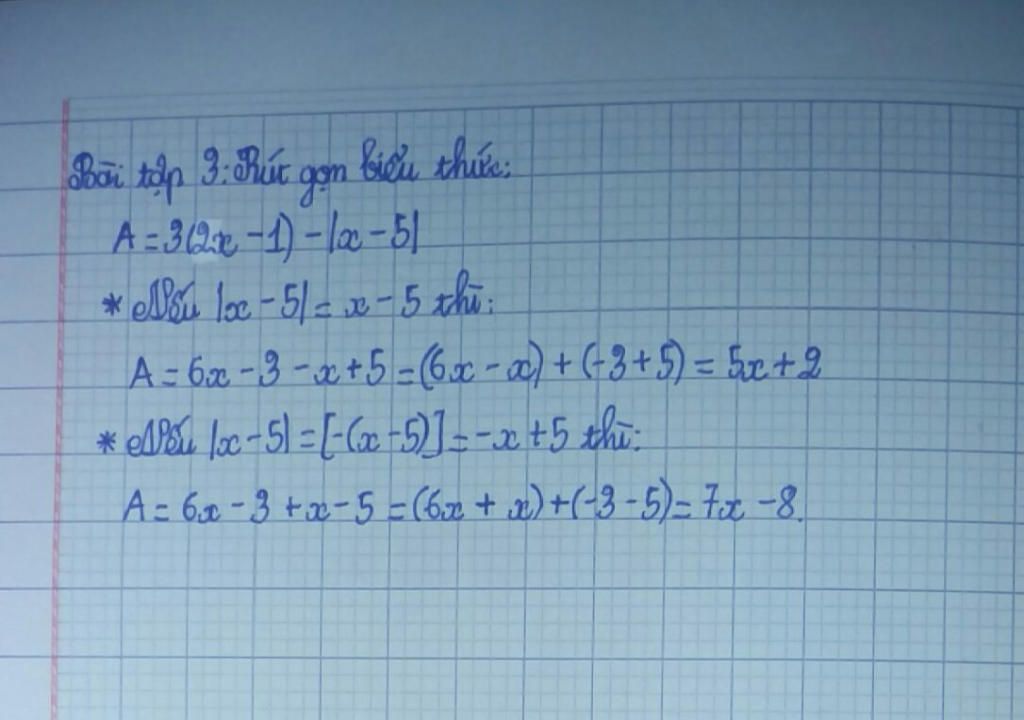 Bài tập 3: Rút gọn biểu thức:
A = 3(2x - 1) - |x - 5|
* Nếu |x - 5| = x - 5 thì:
A = 6x - 3 - x + 5 = (6x - x) + (-3 + 5) = 5x + 2
* Nếu |x - 5| = [-(x - 5)] = -x + 5 thì:
A = 6x - 3 + x - 5 = (6x + x) + (-3 - 5) = 7x - 8.